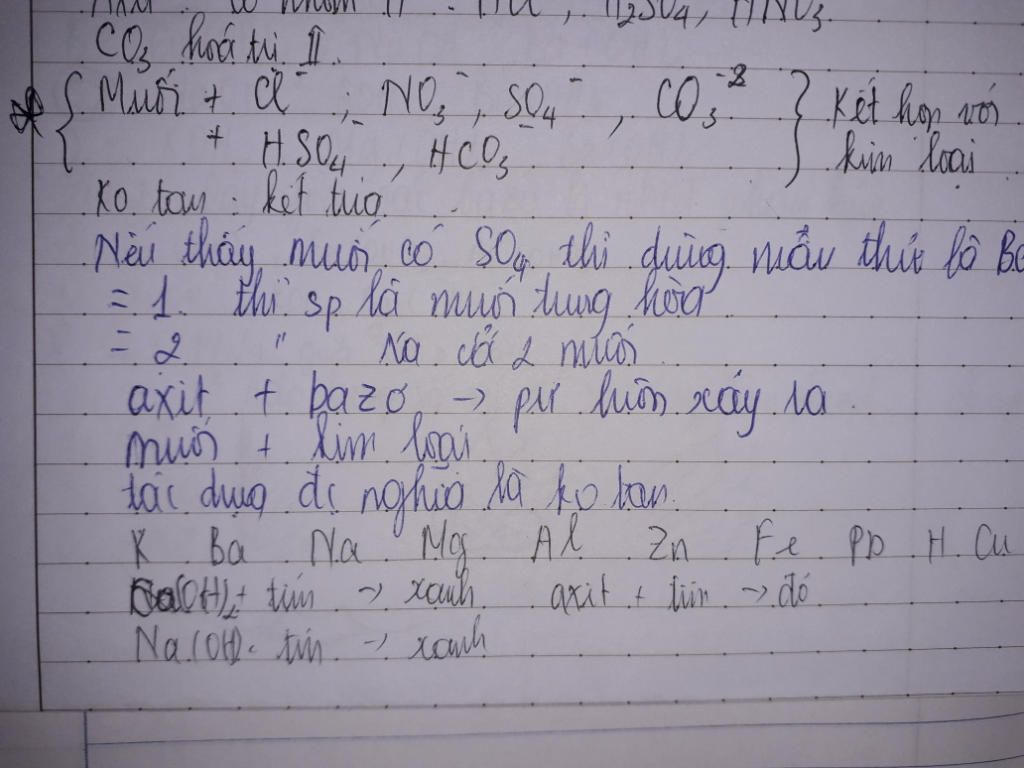 H₂SO₄, HNO₃.
CO₃ hoá trị II.
{ Muối + Cl⁻ ; NO₃⁻ , SO₄⁻ , CO₃⁻² } Kết hợp với
+ HSO₄⁻ , HCO₃⁻ kim loại
Ko tan : kết tủa
Nếu thấy muối có SO₄ thì dùng mẫu thử là Ba
= 1. thì sp là muối trung hòa
= 2 " Na cả 2 muối
axit + bazơ → pư luôn xảy ra.
muối + kim loại
tác dụng đc nghĩa là ko tan.
K Ba Na Mg Al Zn Fe Pb H Cu
(OH)₂ + tím → xanh axit + tím → đỏ
Na(OH). tím → xanh